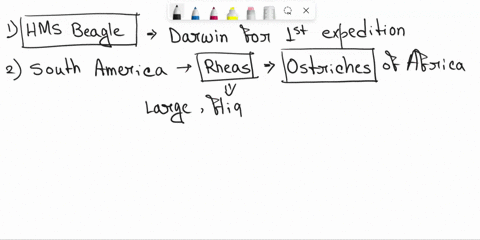 1) HMS Beagle → Darwin for 1st expedition
2) South America → Rheas → Ostriches of Africa
Large, flig